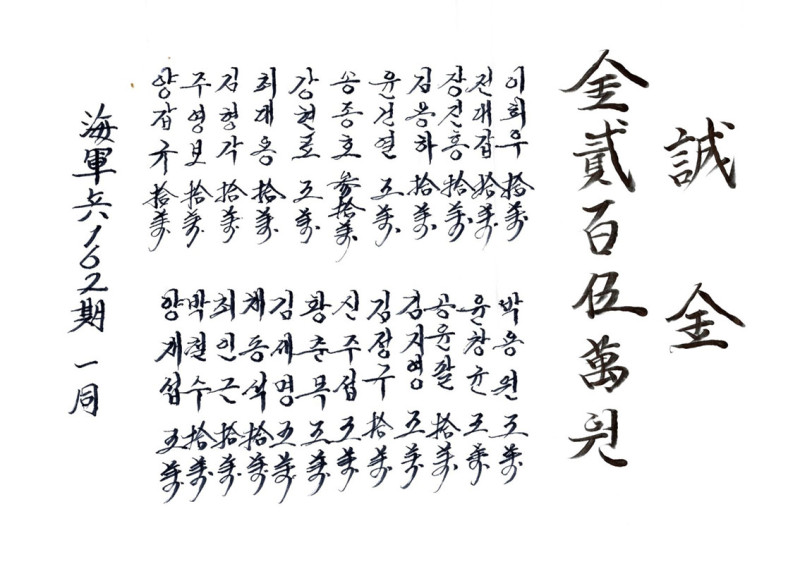 誠金
金貳百伍萬원
이희우 拾萬
전대갑 拾萬
장건흥 拾萬
김용하 拾萬
윤건열 五萬
송종호 参拾萬
강현로 五萬
최대용 拾萬
김형각 拾萬
주영보 拾萬
양갑규 拾萬
박용원 五萬
윤창균 五萬
공윤팔 拾萬
김지영 五萬
김장구 拾萬
신주섭 五萬
황춘목 五萬
김세명 五萬
채동식 拾萬
최인근 拾萬
박철수 拾萬
양계섭 五萬
海軍兵162期 一同